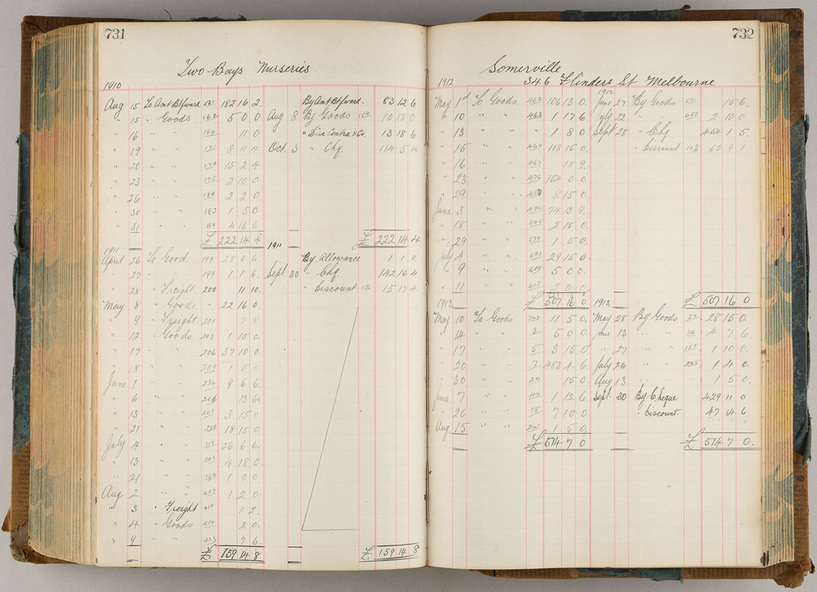 731
Two Bays Nurseries
1910
Aug 15 To Amt Bt forwd 182 16 2 By Amt Bt forwd 83 12 6
15 " Goods 5 0 0 Aug 8 By Goods 10 18 0
16 " " 11 0 " Disc Contra 13 18 6
19 " " 8 11 4 Oct 3 " Chq 114 5 4
20 " " 15 2 4
23 " " 2 10 0
26 " " 2 2 0
30 " " 1 5 0
31 " " 4 16 6
£ 222 14 4 £ 222 14 4
1911 1911
April 26 To Good 198 28 0 6 By Allowance 1 1 0
27 " " 199 1 1 6 Sept 30 " Chq 142 16 4
28 " Freight 200 11 10 " Discount 15 17 4
May 8 " Goods 22 16 0
9 " Freight 201 7 8
12 " Goods 203 1 15 0
17 " " 206 37 10 0
18 " " 1 5 0
June 1 " " 8 6 6
6 " " 13 6
13 " " 3 15 0
21 " " 18 15 0
July 4 " " 26 6 6
13 " " 4 18 0
21 " " 1 0 0
Aug 2 " " 1 2 0
3 " Freight 1 2
4 " Goods 2 0
9 " " 7 6
£ 159 14 8 £ 159 14 8
732
Somerville
346 Flinders St Melbourne
1912 1912
May 1st To Goods 106 13 0 June 27 By Goods 15 6
6 10 " " 463 1 17 6 July 22 " 2 10 0
13 " " 1 8 0 Sept 28 " Chq 1 5
15 " " 118 15 0 " Discount
16 " " 18 9
23 " "
29 " " 8 15 0
June 3 " " 74 13 9
18 " " 2 15 0
29 " " 1 5 0
July 4 " " 29 15 6
9 " " 5 0 0
11 " " 2 0 0
£ 507 16 0 £ 507 16 0
1913 1913
May 10 To Goods 11 5 0 May 28 By Goods 28 15 0
14 " " 5 0 0 June 13 " " 4 7 6
17 " " 5 3 15 0 27 " " 1 10 0
20 " " 7 483 4 6 July 26 " "
30 " " 15 0 Aug 13 " " 1 5 0
June 7 " " 1 12 6 Sept 30 By Cheque 429 11 0
20 " " 7 10 0 " Discount 47 14 6
Aug 15 " " 1 5 0
£ 514 7 0 £ 514 7 0